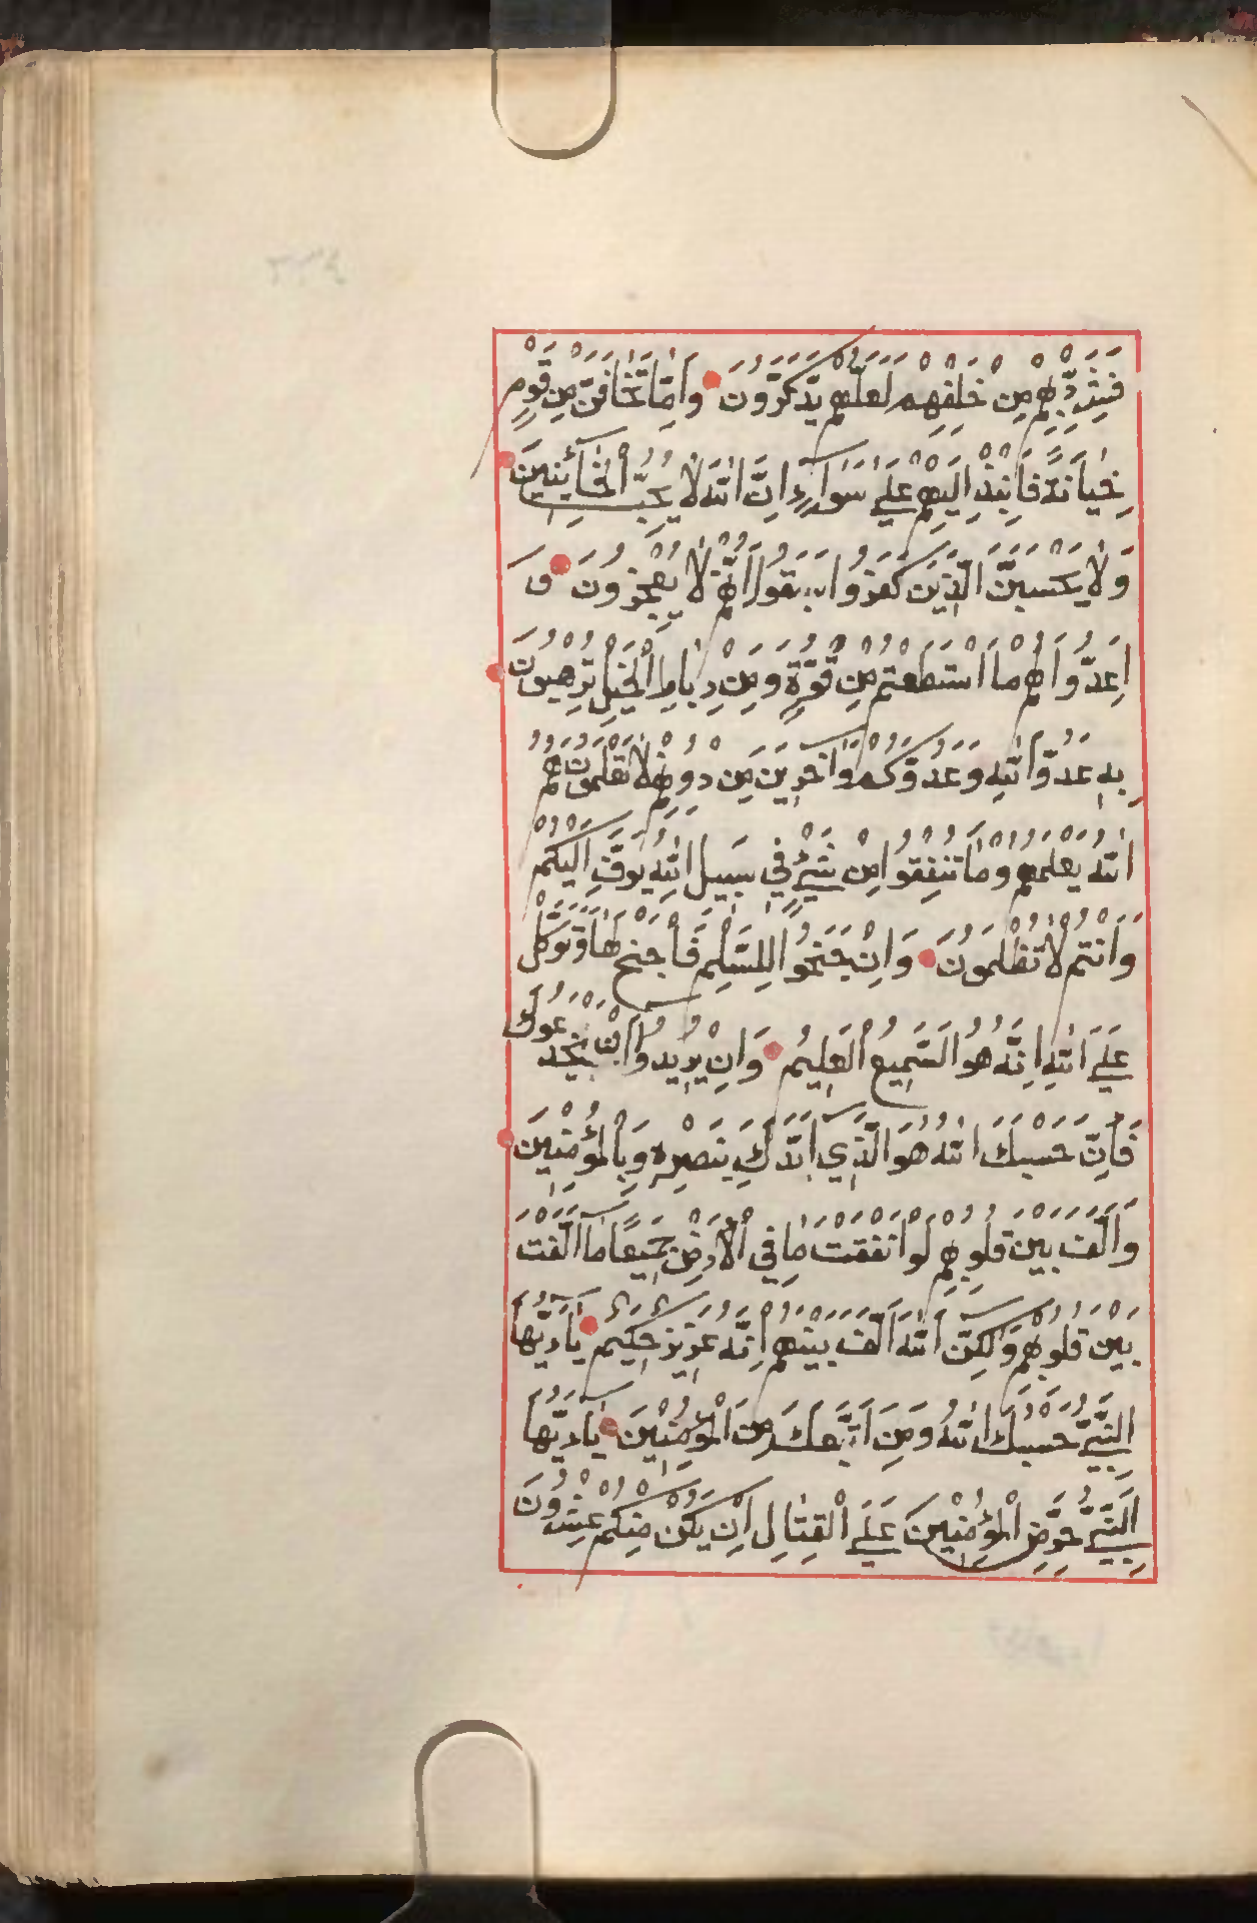 فَشَرِّدْ بِهِمْ مِنْ خَلْفِهِمْ لَعَلَّهُمْ يَذَّكَّرُونَ وَاِمَّا تَخَافَنَّ مِنْ قَوْمٍ
خِيَانَةً فَانْبِذْ اِلَيْهِمْ عَلَى سَوَآءٍ اِنَّ اللّٰهَ لَا يُحِبُّ الْخَآئِنِينَ
وَلَا يَحْسَبَنَّ الَّذِينَ كَفَرُوا سَبَقُوا اِنَّهُمْ لَا يُعْجِزُونَ وَ
اَعِدُّوا لَهُمْ مَا اسْتَطَعْتُمْ مِنْ قُوَّةٍ وَمِنْ رِبَاطِ الْخَيْلِ تُرْهِبُونَ
بِهِ عَدُوَّ اللّٰهِ وَعَدُوَّكُمْ وَآخَرِينَ مِنْ دُونِهِمْ لَا تَعْلَمُونَهُمْ
اللّٰهُ يَعْلَمُهُمْ وَمَا تُنْفِقُوا مِنْ شَيْءٍ فِي سَبِيلِ اللّٰهِ يُوَفَّ اِلَيْكُمْ
وَاَنْتُمْ لَا تُظْلَمُونَ وَاِنْ جَنَحُوا لِلسَّلْمِ فَاجْنَحْ لَهَا وَتَوَكَّلْ
عَلَى اللّٰهِ اِنَّهُ هُوَ السَّمِيعُ الْعَلِيمُ وَاِنْ يُرِيدُوا اَنْ يَخْدَعُوكَ
فَاِنَّ حَسْبَكَ اللّٰهُ هُوَ الَّذِي اَيَّدَكَ بِنَصْرِهِ وَبِالْمُؤْمِنِينَ
وَاَلَّفَ بَيْنَ قُلُوبِهِمْ لَوْ اَنْفَقْتَ مَا فِي الْاَرْضِ جَمِيعًا مَا اَلَّفْتَ
بَيْنَ قُلُوبِهِمْ وَلٰكِنَّ اللّٰهَ اَلَّفَ بَيْنَهُمْ اِنَّهُ عَزِيزٌ حَكِيمٌ يَآ اَيُّهَا
النَّبِيُّ حَسْبُكَ اللّٰهُ وَمَنِ اتَّبَعَكَ مِنَ الْمُؤْمِنِينَ يَآ اَيُّهَا
النَّبِيُّ حَرِّضِ الْمُؤْمِنِينَ عَلَى الْقِتَالِ اِنْ يَكُنْ مِنْكُمْ عِشْرُونَ